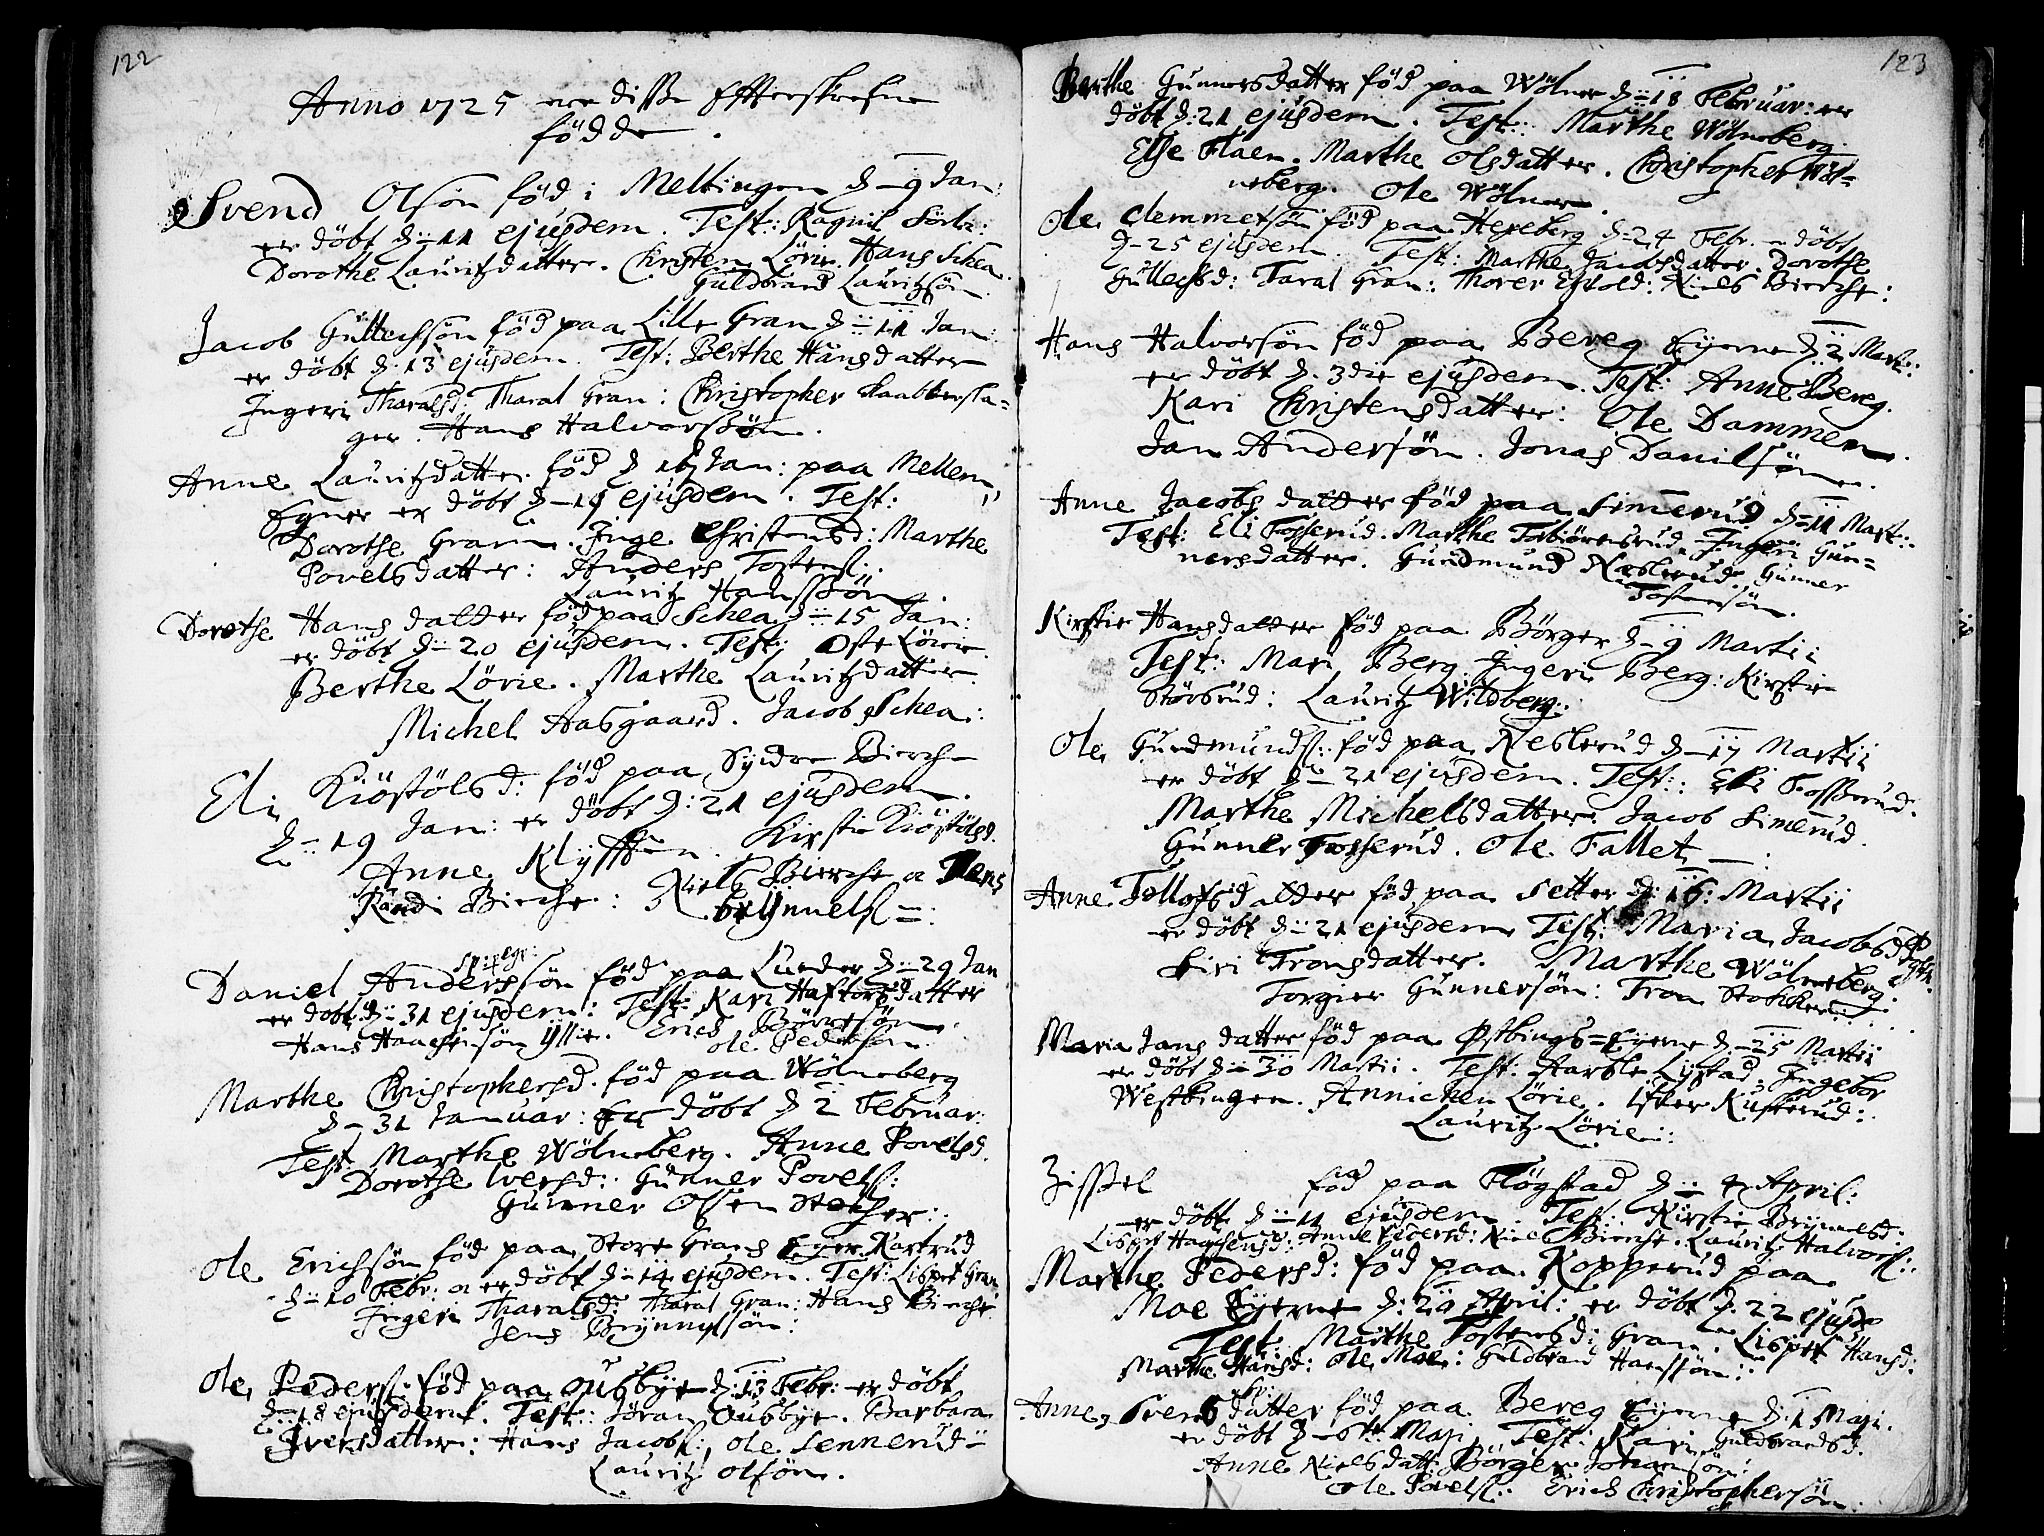 122
Anno 1725 ere disse Efterskrefne
fødde.
Svend Olsøn fød i Meltingen d. 9 Jan:
er døbt d: 11 ejusdem. Test: Ragnil Sørli:
Dorothe Lauritzdatter. Christen Lörie. Hans Schea.
Guldbrand Lauritzsøn.
Jacob Gullechsøn fød paa Lille Gran d: 11 Jan:
er døbt d. 13 ejusdem. Test: Berthe Hansdatter
Ingeri Tharalsd: Tharal Gran: Christopher Raabbersla=
ger. Hans Halvorssøn.
Anne Lauritzdatter fød d 16 Jan: paa Mellem
Eyner er døbt d. 19 ejusdem. Test:
Dorothe Gram. Inge Christensd: Marthe
Povelsdatter: Anders Tostens:
Lauritz Hanssøn
Dorothe Hansdatter fød paa Schea d: 15 Jan:
er døbt d: 20 ejusdem. Test: Oste Lörie.
Berthe Lörie. Marthe Lauritzdatter.
Michel Aasgaard. Jacob Schea:
Eli Kiöstölsd: fød paa Sÿdre Bierche
d: 19 Jan: er døbt d: 21 ejusdem.
Anne Klÿfften. Kirstie Kiöstölsd.
Randi Bierche: Niels Bierche Jens
Brÿnnels=:
Daniel Anderssøn fød paa Lunder d: 29 Jan
er døbt d: 31 ejusdem: Test: Kari Haftorsdatter
Hans Haagensøn Ÿllie. Erich Börresøn
Ole Pedersøn
Marthe Christophersd. fød paa Wölneberg
d. 31 Januar: Er døbt d 2 Februar:
Test: Marthe Wölneberg. Anne Povelsd.
Dorothe Iversd: Gunner Povels:
Gunner Olsen Stocher:
Ole Erichsøn fød paa Store Grans Eyer Kartrud
d: 10 Febr: er døbt d: 14 ejusdem. Test: Lisbet Gran
Ingeri Tharalsd: Tharal Gran: Hans Bierche
Jens Brÿnnylsøn:
Ole Peders: fød paa Ousbÿe d: 13 Febr: er døbt
d: 18 ejusdem. Test: Jöran Ousbÿe. Barbara
Iversdatter: Hans Jacobs: Ole Sennerud=
Lauritz Olsøn.
123
Berthe Gunnersdatter fød paa Wölner d: 18 Februar: er
døbt d: 21 ejusdem. Test: Marthe Wölneberg.
Else Flaen. Marthe Olsdatter. Christopher Wöl=
neberg. Ole Wölner.
Ole Clemmetsøn fød paa Hexeberg d: 24 Febr. døbt
d- 25 ejusdem. Test: Marthe Jacobsdatter. Dorothe
Gullechsd: Taral Gran: Thorer Egvold: Niels Bierche:
Hans Halvorsøn fød paa Bereg Eyerne d: 2 Marti:
er døbt d. 3die ejusdem. Test: Anne Bereg.
Kari Christensdatter: Ole Dammen.
Jan Andersøn. Jonas Danilsøn.
Anne Jacobsdatter fød paa Simerud d: 11 Marti:
Test: Eli Fosserud. Marthe Torbiörnsrud. Ingeri Gun=
nersdatter. Gundmund Næblerud. Gunner
Tostensøn.
Kirstie Hansdatter fød paa Börger d: 9 Martii
Test: Mari Berg. Ingeri Berg: Kirstie
Störbrud: Lauritz Wildberg:
Ole Gundmunds: fød paa Neblerud d- 17 Martii
er døbt d: 21 ejusdem. Test: Eli Fosserud.
Marthe Michelsdatter. Jacob Simerud.
Gunner Fosserud. Ole Fallet.
Anne Tollofsdatter fød paa Setter d: 16: Martii
er døbt d: 21 ejusdem Test: Maria Jacobsd
Siri Tronsdatter. Marthe Wölneberg.
Torgier Gunnersøn: Tron Stokker:
Maria Jansdatter fød paa Østbings=Eyerne d: 25 Martii
er døbt d: 30 Martii. Test: Aarble Lÿstad. Ingebor
Westbingen. Annichen Lörie. Ifver Kusterud:
Lauritz Lörie:
Zissel fød paa Flögstad d: 4 April:
er døbt d: 11 ejusdem Test: Kirstie Brÿnnelsd:
Lisbet Haagensd: Anne Pedersd: Niels Bierche. Lauritz Halvors:
Marthe Pedersd: fød paa Kopperud paa
Moe Eyerne d: 20 April: er døbt d: 22 ejusd
Test: Marthe Tostensd: Gran. Lisbet Hansd:
Marthe Hansd: Ole Moe: Guldbrand Hanssøn:
Anne Svensdatter fød paa Bereg Eyerne d: 1 Maji.
er døbt d- 6te Maji Test: Kari Guldbrandsd.
Anne Nielsdatt: Börger Johansøn:
Ole Povels: Erich Christophersøn.